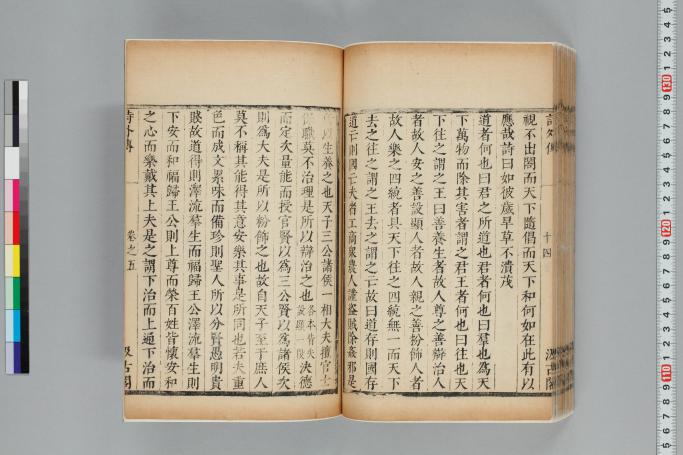 詩外傳
十四
汲古閣
視不出閤而天下隨倡而天下和何如在此有以
應哉詩曰如彼歲旱草不潰茂
道者何也曰君之所道也君者何也曰羣也爲天
下萬物而除其害者謂之君王者何也曰往也天
下往之謂之王曰善養生者故人尊之善辯治人
者故人安之善設顯人者故人親之善扮飾人者
故人樂之四統者具天下往之四統無一而天下
去之往之謂之王去之謂之亡故曰道存則國存
道亡則國亡夫省工商衆農人謹盜賊除姦邪是
以生養之也天子三公諸侯一相大夫擅官士
保職莫不治理是所以辯治之也 各本皆失 一段 決德
而定次量能而授官賢以爲三公賢以爲諸侯次
則爲大夫是所以粉飾之也故自天子至于庶人
莫不稱其能得其意安樂其事是所同也若夫重
色而成文累味而備珍則聖人所以分賢愚明貴
賤故道得則澤流羣生而福歸王公澤流羣生則
下安而和福歸王公則上尊而榮百姓皆懷安和
之心而樂戴其上夫是之謂下治而上通下治而
詩外傳
卷之五
汲古閣